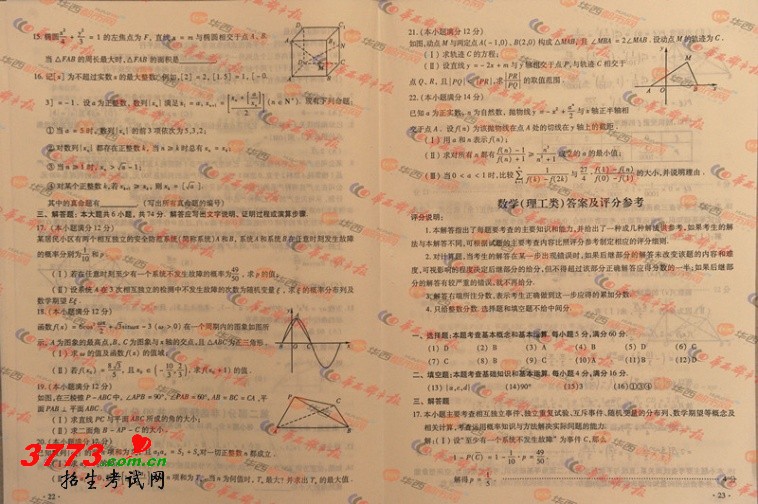 15. 椭圆x²/4 + y²/3 = 1 的左焦点为 F, 直线 x = m 与椭圆相交于点 A、B.
当 △FAB 的周长最大时, △FAB 的面积是
16. 记[x]为不超过实数 x 的最大整数. 例如, [2] = 2, [1.5] = 1, [-0.
3] = -1. 设 a 为正整数, 数列{xₙ}满足 x₁ = a, xₙ₊₁ = (n∈N*). 现有下列命题:
① 当 a = 5 时, 数列{xₙ}的前3项依次为5,3,2;
② 对数列{xₙ}都存在正整数 k, 当 n≥k 时总有 xₙ = xₖ;
③ 当 n≥1 时, xₙ > √a - 1;
④ 对某个正整数 k, 若 xₖ₊₁ ≥ xₖ, 则 xₖ = [√a].
其中的真命题有 (写出所有真命题的编号)
三、解答题: 本大题共6小题, 共74分. 解答应写出文字说明, 证明过程或演算步骤.
17. (本小题满分12分)
某居民小区有两个相互独立的安全防范系统(简称系统)A和B, 系统A和系统B在任意时刻发生故障
的概率分别为1/10和 p
(Ⅰ) 若在任意时刻至少有一个系统不发生故障的概率为49/50, 求 p 的值;
(Ⅱ) 设系统A在3次相互独立的检测中不发生故障的次数为随机变量ξ, 求ξ的概率分布列及
数学期望Eξ.
18. (本小题满分12分)
函数 f(x) = 6cos² ωx/2 + √3 sinωx - 3 (ω>0) 在一个周期内的图象如图所
示, A为图象的最高点, B、C为图象与x轴的交点, 且△ABC为正三角形.
(Ⅰ) 求ω的值及函数 f(x) 的值域;
(Ⅱ) 若 f(x₀) = 8√3/5, 且 x₀∈(-10/3, 2/3), 求 f(x₀+1) 的值.
19. (本小题满分12分)
如图, 在三棱锥P-ABC中, ∠APB = 90°, ∠PAB = 60°, AB = BC = CA, 平
面PAB⊥平面ABC.
(Ⅰ) 求直线PC与平面ABC所成的角的大小;
(Ⅱ) 求二面角B-AP-C的大小.
20. (本小题满分12分)
对一切正整数 n 都成立.
3773.com.cn
招生考试网
·22·
21. (本小题满分12分)
如图, 动点M与两定点A(-1,0)、B(2,0)构成△MAB, 且∠MBA = 2∠MAB. 设动点M的轨迹为C.
(Ⅰ) 求轨迹C的方程;
(Ⅱ) 设直线 y = -2x + m 与y轴相交于点P, 与轨迹C相交于
点Q、R, 且|PQ|<|PR|, 求|PR|/|PQ|的取值范围.
22. (本小题满分14分)
已知a为正实数, n为自然数, 抛物线 y = -x² + aⁿ/2 与x轴正半轴相
交于点A. 设 f(n) 为该抛物线在点A处的切线在y轴上的截距.
(Ⅰ) 用a和n表示 f(n);
(Ⅱ) 求对所有n都有 成立的a的最小值;
(Ⅲ) 当0<a<1时, 比较 与 的大小, 并说明理由.
数学(理工类)答案及评分参考
评分说明:
1. 本解答指出了每题要考查的主要知识和能力, 并给出了一种或几种解法供参考, 如果考生的解
法与本解答不同, 可根据试题的主要考查内容比照评分参考制定相应的评分细则.
2. 对计算题, 当考生的解答在某一步出现错误时, 如果后继部分的解答未改变该题的内容和难
度, 可视影响的程度决定后继部分的给分, 但不得超过该部分正确解答应得分数的一半; 如果后继部
分的解答有较严重的错误, 就不再给分.
3. 解答右端所注分数, 表示考生正确做到这一步应得的累加分数.
4. 只给整数分数. 选择题和填空题不给中间分.
一、选择题: 本题考查基本概念和基本运算. 每小题5分, 满分60分.
(1) D (2) B (3) A (4) B (5) D (6) C
(7) C (8) B (9) C (10) A (11) B (12) D
二、填空题: 本题考查基础知识和基本运算. 每小题4分, 满分16分.
(13) {a,c,d} (14) 90° (15) 3 (16) ①③④
三、解答题
17. 本小题主要考查相互独立事件、独立重复试验、互斥事件、随机变量的分布列、数学期望等概念及
相关计算, 考查运用概率知识与方法解决实际问题的能力.
解: (Ⅰ) 设“至少有一个系统不发生故障”为事件C, 那么
1 - P(C) = 1 - 1/10 · p = 49/50
解得 p = 1/5
·23·